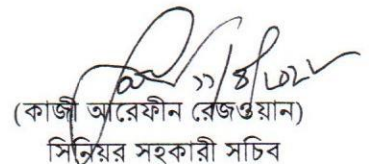 ১১/৪/২০২২
(কাজী আরেফীন রেজওয়ান)
সিনিয়র সহকারী সচিব